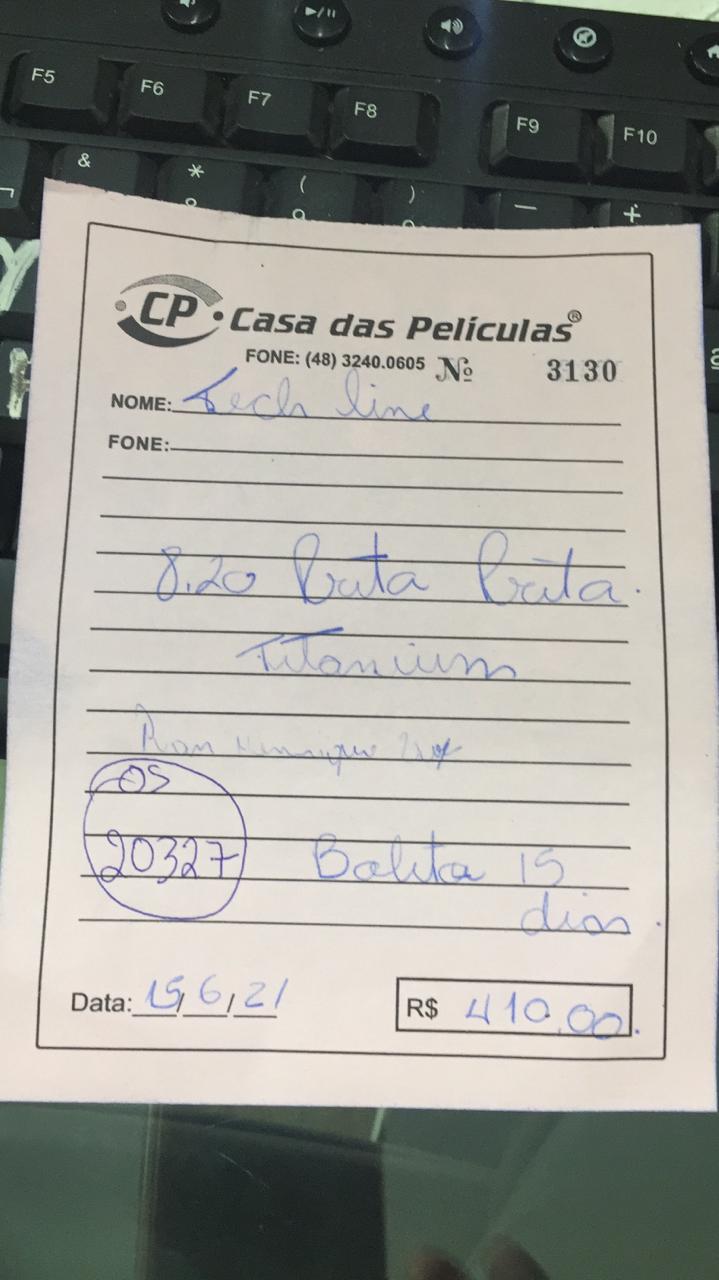 F5 F6 F7 F8 F9 F10
& * ( ) — +
CP Casa das Películas®
FONE: (48) 3240.0605 Nº 3130
NOME: Tech line
FONE:
8.20
Titanium
OS
20327
15
dias.
Data: 15/6/21
R$ 410,00.